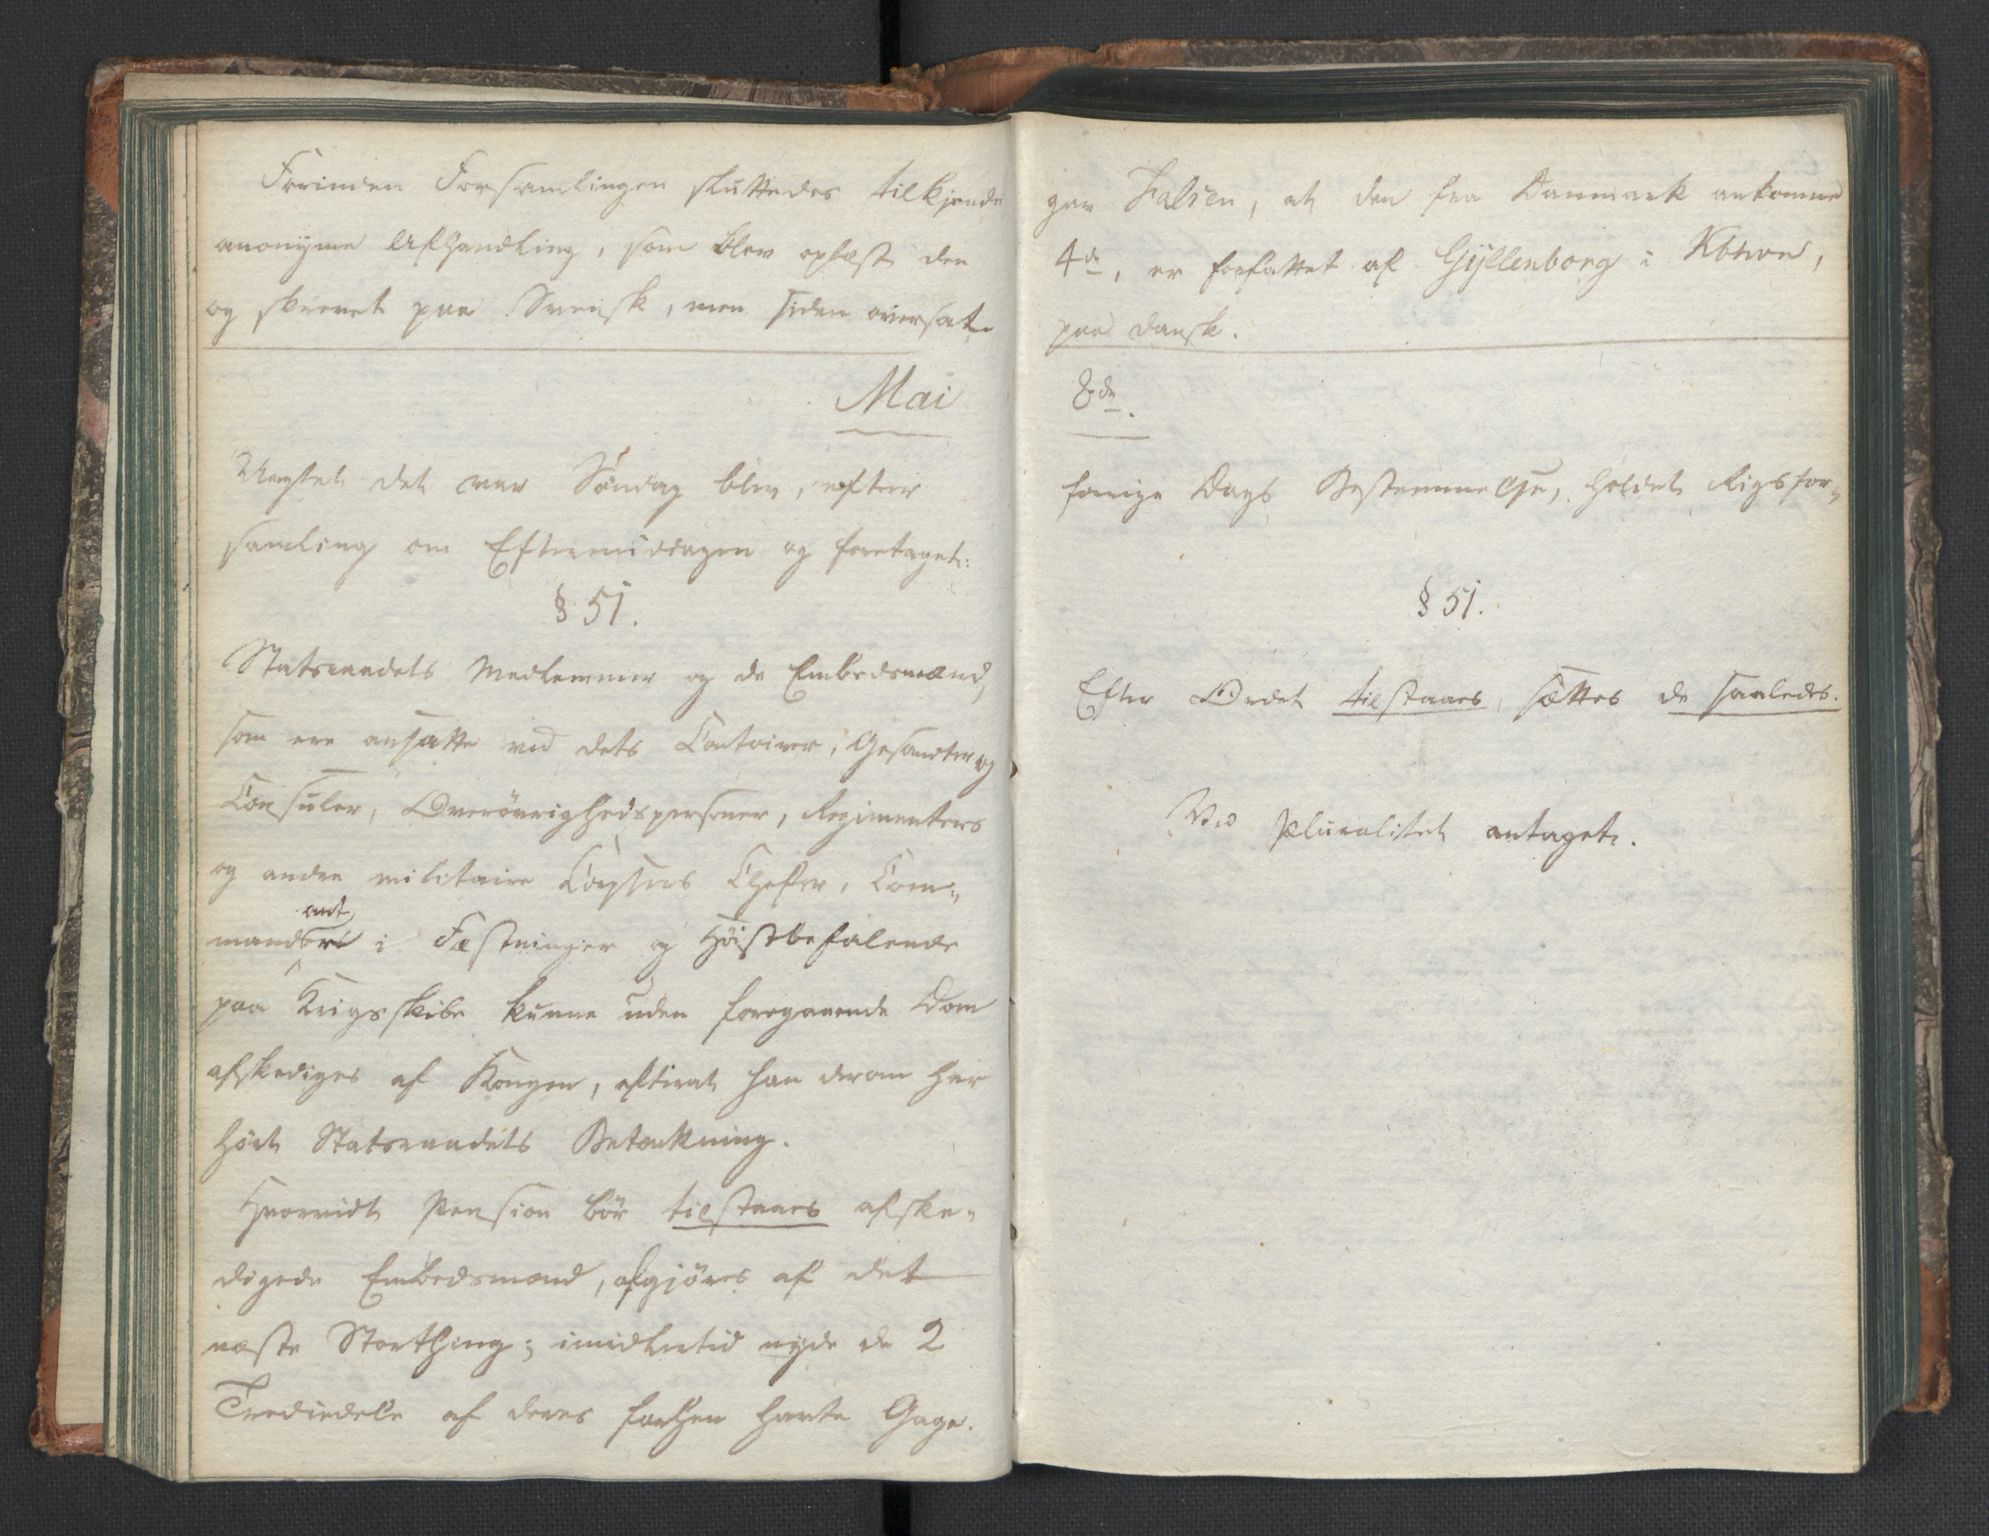 Forinden Forsamlingen sluttedes tilkjende
gav Falsen, at den fra Danmark ankomne
anonyme Afhandling, som blev oplæst den
4de, er forfattet af Gyllenborg i Kbhvn,
og skrevet paa Svensk, men siden oversat
paa dansk.
Mai
8de.
Uagtet det var Söndag blev, efter
forrige Dags Bestemmelse, holdet Rigsfor-
samling om Eftermiddagen og foretaget:
§ 51.
§ 51.
Statsraadets Medlemmer og de Embedsmænd,
som ere ansatte ved dets Contoirer, Gesandter og
Consuler, Overövrighedspersoner, Regimenters
og andre militaire Corpsers Chefer, Com-
mandanter i Fæstninger og Høistbefalende
paa Krigsskibe kunne uden foregaaende Dom
afskediges af Kongen, efterat han derom har
hört Statsraadets Betænkning.
Hvorvidt Pension bör tilstaaes afske-
digede Embedsmænd, afgjöres af det
næste Storthing; imidlertid nyde de 2
Trediedele af deres forhen havte Gage.
Efter Ordet tilstaaes, sættes de saaledes.
Ved Pluralitet antaget.